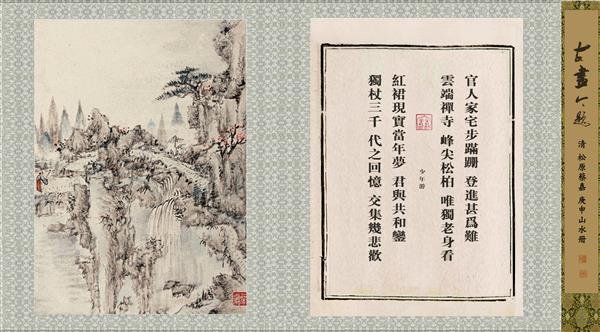 古畫今題
清 松原蔡嘉 庚申山水冊
官人家宅步蹣跚 登進甚爲難
雲端禪寺 峰尖松柏 唯獨老身看
少年游
紅裙現實當年夢 君與共和鑾
獨杖三千 代之回憶 交集幾悲歡